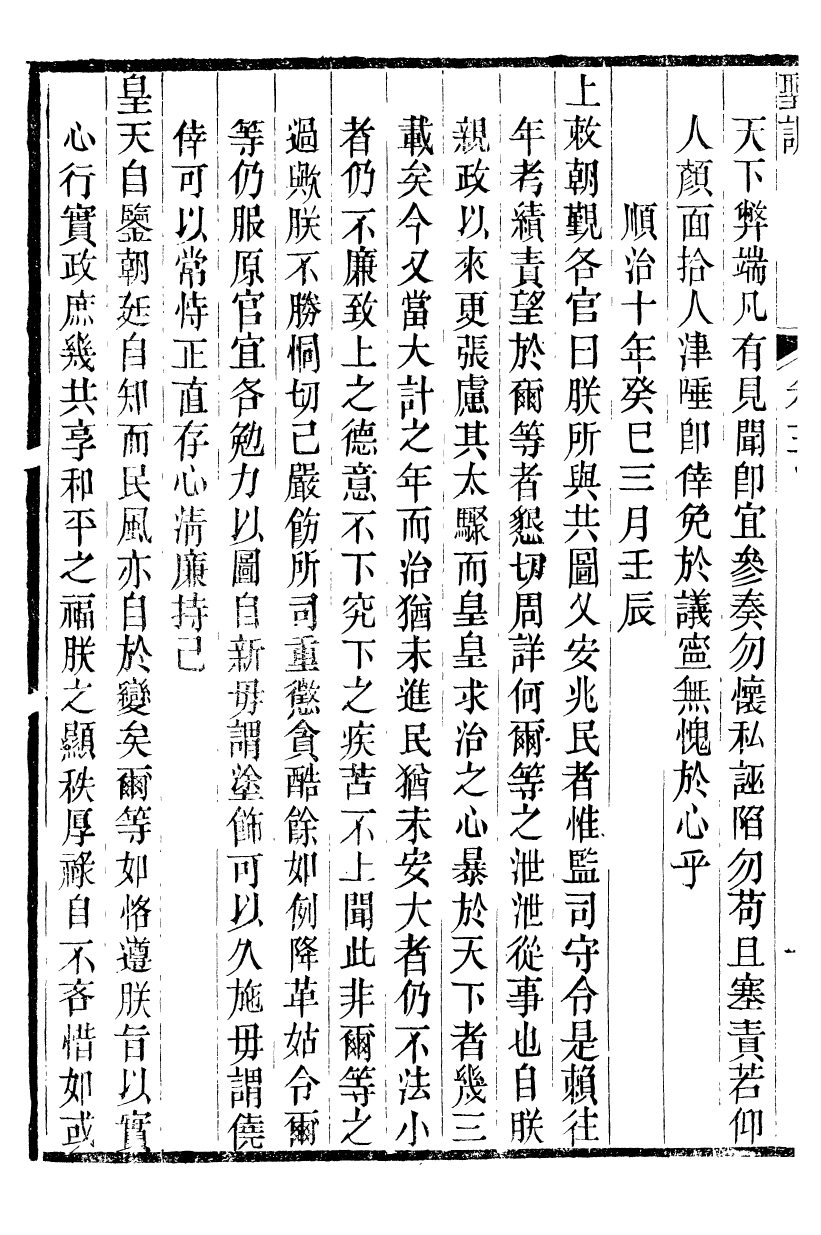 聖訓
天下弊端凡有見聞卽宜參奏勿懷私誣陷勿苟且塞責若仰
人顏面拾人津唾卽倖免於議寧無愧於心乎
順治十年癸巳三月壬辰
上敕朝覲各官曰朕所與共圖乂安兆民者惟監司守令是賴往
年考績責望於爾等者懇切周詳何爾等之泄泄從事也自朕
親政以來更張慮其太驟而皇皇求治之心暴於天下者幾三
載矣今又當大計之年而治猶未進民猶未安大者仍不法小
者仍不廉致上之德意不下究下之疾苦不上聞此非爾等之
過歟朕不勝恫切已嚴飭所司重懲貪酷餘如例降革姑令爾
等仍服原官宜各勉力以圖自新毋謂塗飾可以久施毋謂僥
倖可以常恃正直存心淸廉持己
皇天自鑒朝廷自知而民風亦自於變矣爾等如恪遵朕旨以實
心行實政庶幾共享和平之福朕之顯秩厚祿自不吝惜如或